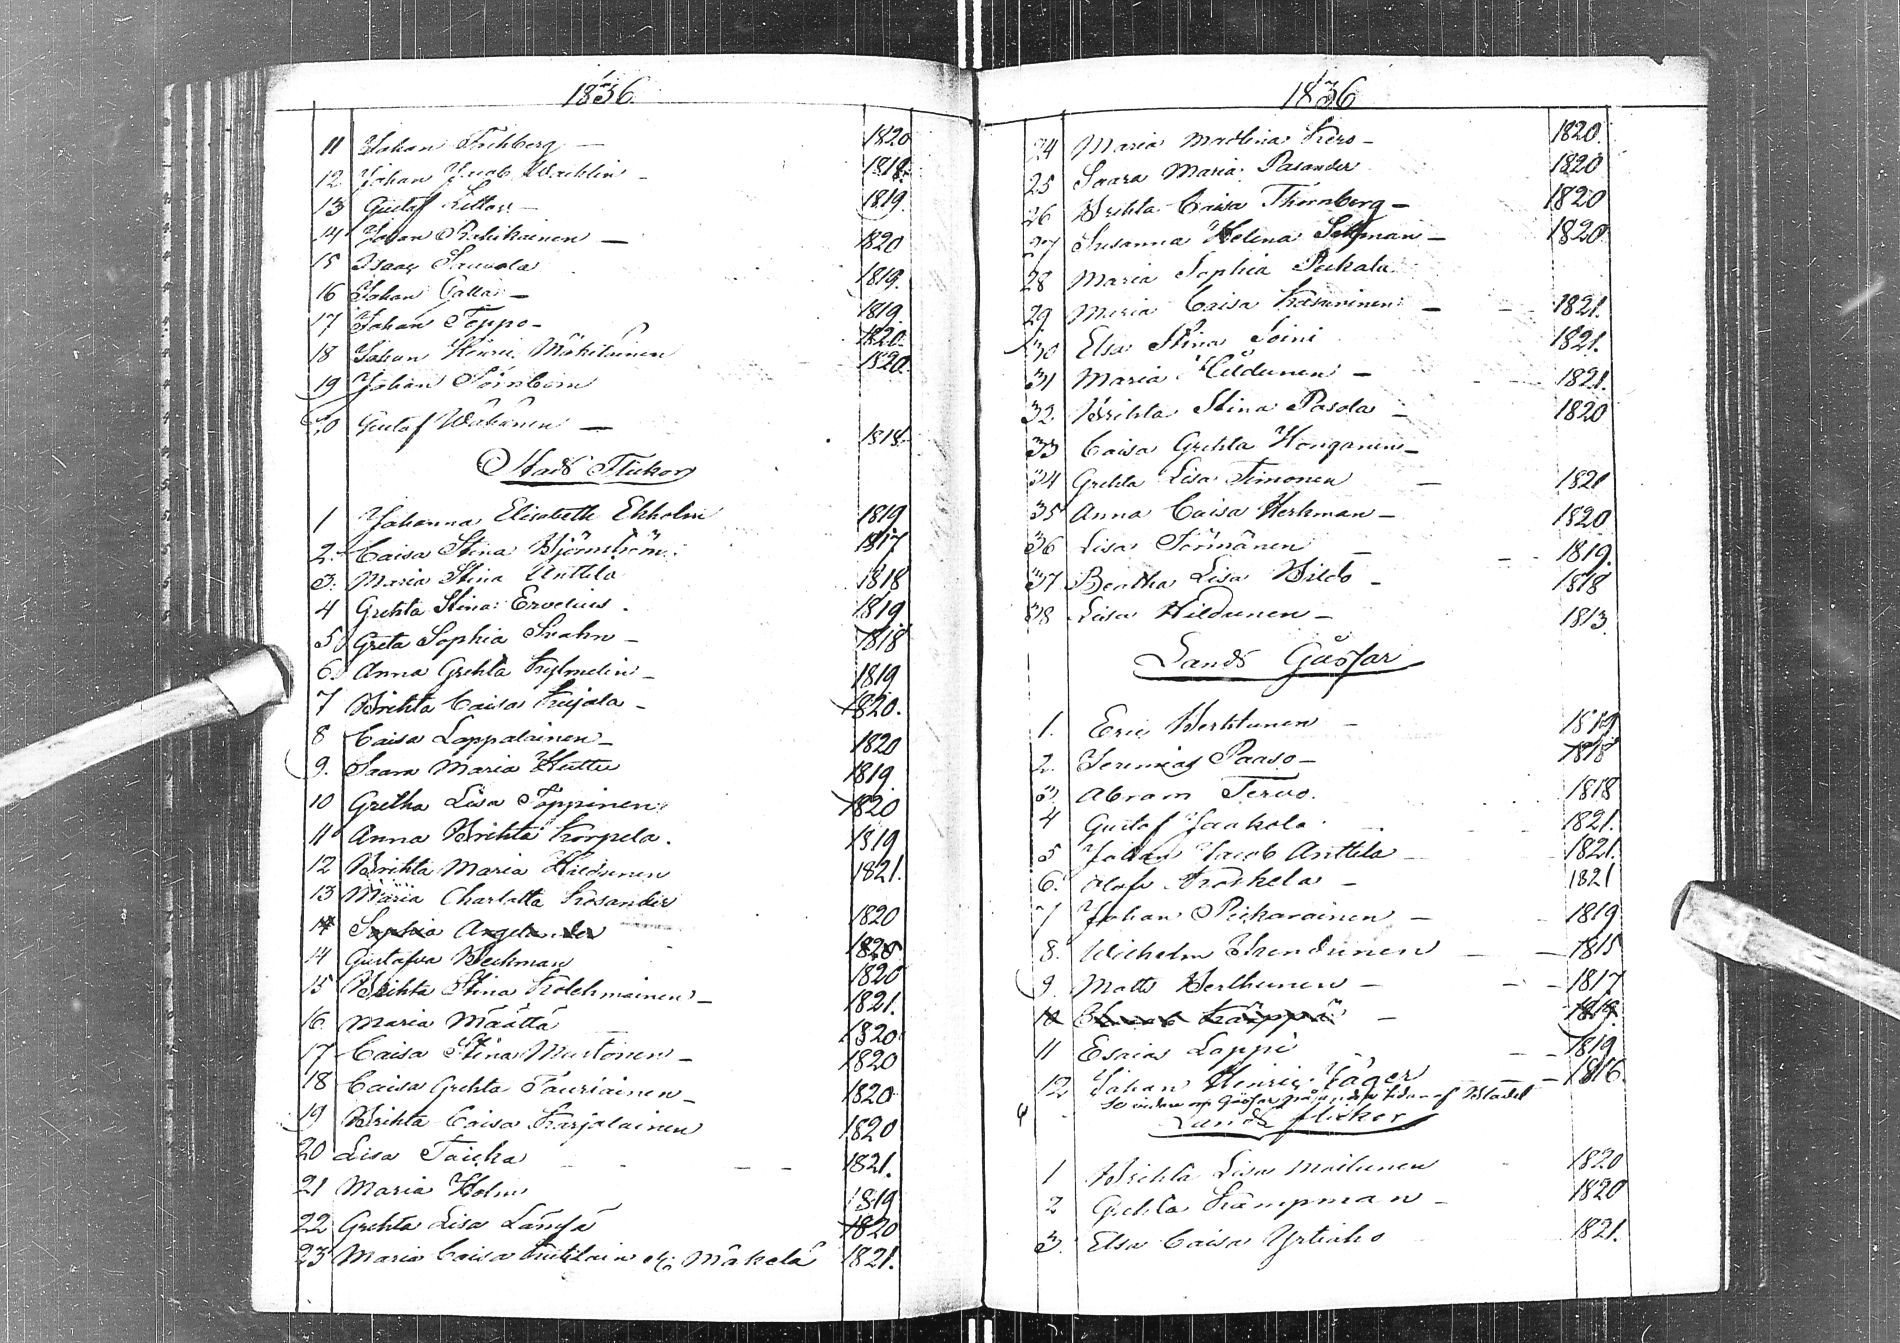 1836
11 Johan Frihberg — 1820
12 Johan Jacob Wachlin — 1818.
13 Gustaf — 1819.
14 Johan — 1820
15 Isaac Sauvola 1819.
16 Johan — 1819
17 Johan Toppo — 1820.
18 Johan Henric 1820.
19 Johan Törnbom
20 Gustaf — 1818.
Stads Flickor
1 Johanna Elisabeth Ekholm 1819
2. Caisa Stina Björnström. 1817
3. Maria Stina Anttila 1818
4 Grehta Stina Ervelius. 1819
5 Greta Sophia Snahn — 1818
6. Anna Grehta Kylmelin — 1819
7 Brihta Caisa Kujala — 1820.
8 Caisa Lappalainen — 1820
9. Saara Maria Huttu 1819
10 Gretha Lisa Toppinen 1820
11 Anna Brihta Korpela. 1819
12 Brihta Maria Hildunen 1821.
13 Maria Charlotta Kosander 1820
14 Sophia Angelander 1820
14 Gustafva Beckman 1820
15 Brihta Stina Kolehmainen — 1821.
16 Maria Määttä 1820
17 Caisa Stina Mustonen — 1820
18 Caisa Grehta Tauriainen — 1820
19 Brihta Caisa Karjalainen 1820
20 Lisa Taicka 1821.
21 Maria Holm 1819
22 Grehta Lisa Lämsä 1820
23 Maria Caisa Mäkelä 1821.
1836
24 Maria Madlena Kero — 1820.
25 Saara Maria Pasander 1820
26 Brihta Caisa Thörnberg — 1820
27 Susanna Helena — 1820
28 Maria Sophia Pickala
29 Maria Caisa — 1821.
30 Elsa Stina Soini 1821.
31 Maria Hildunen — 1821.
32. Brihta Stina Pasola — 1820
33 Caisa Grehta Honganen —
34 Grehta Lisa Timonen — 1821
35 Anna Caisa Herkman — 1820
36 Lisa Törmänen — 1819.
37 Bertha Lisa — 1818
38 Lisa Hildunen — 1813.
Lands Gåsfar
1. Eric — 1819
2. Jeremias Paaso — 1818
3. Abram Tervo. 1818
4 Gustaf Jaakola 1821.
5 Johan Jacob Anttila — 1821.
6. Olof Koskela — 1821
7 Johan Pickarainen — 1819
8. Wilhelm — 1815
9. Matts — 1817
10 Käppä — 1819
11 Esaias Lappi — 1819
12 Johan Henric Jäger — 1816.
Lands flickor
1 Brihta Lisa Moilanen 1820
2 Grehta Kampman — 1820
3. Elsa Caisa Yrtiaho 1821.